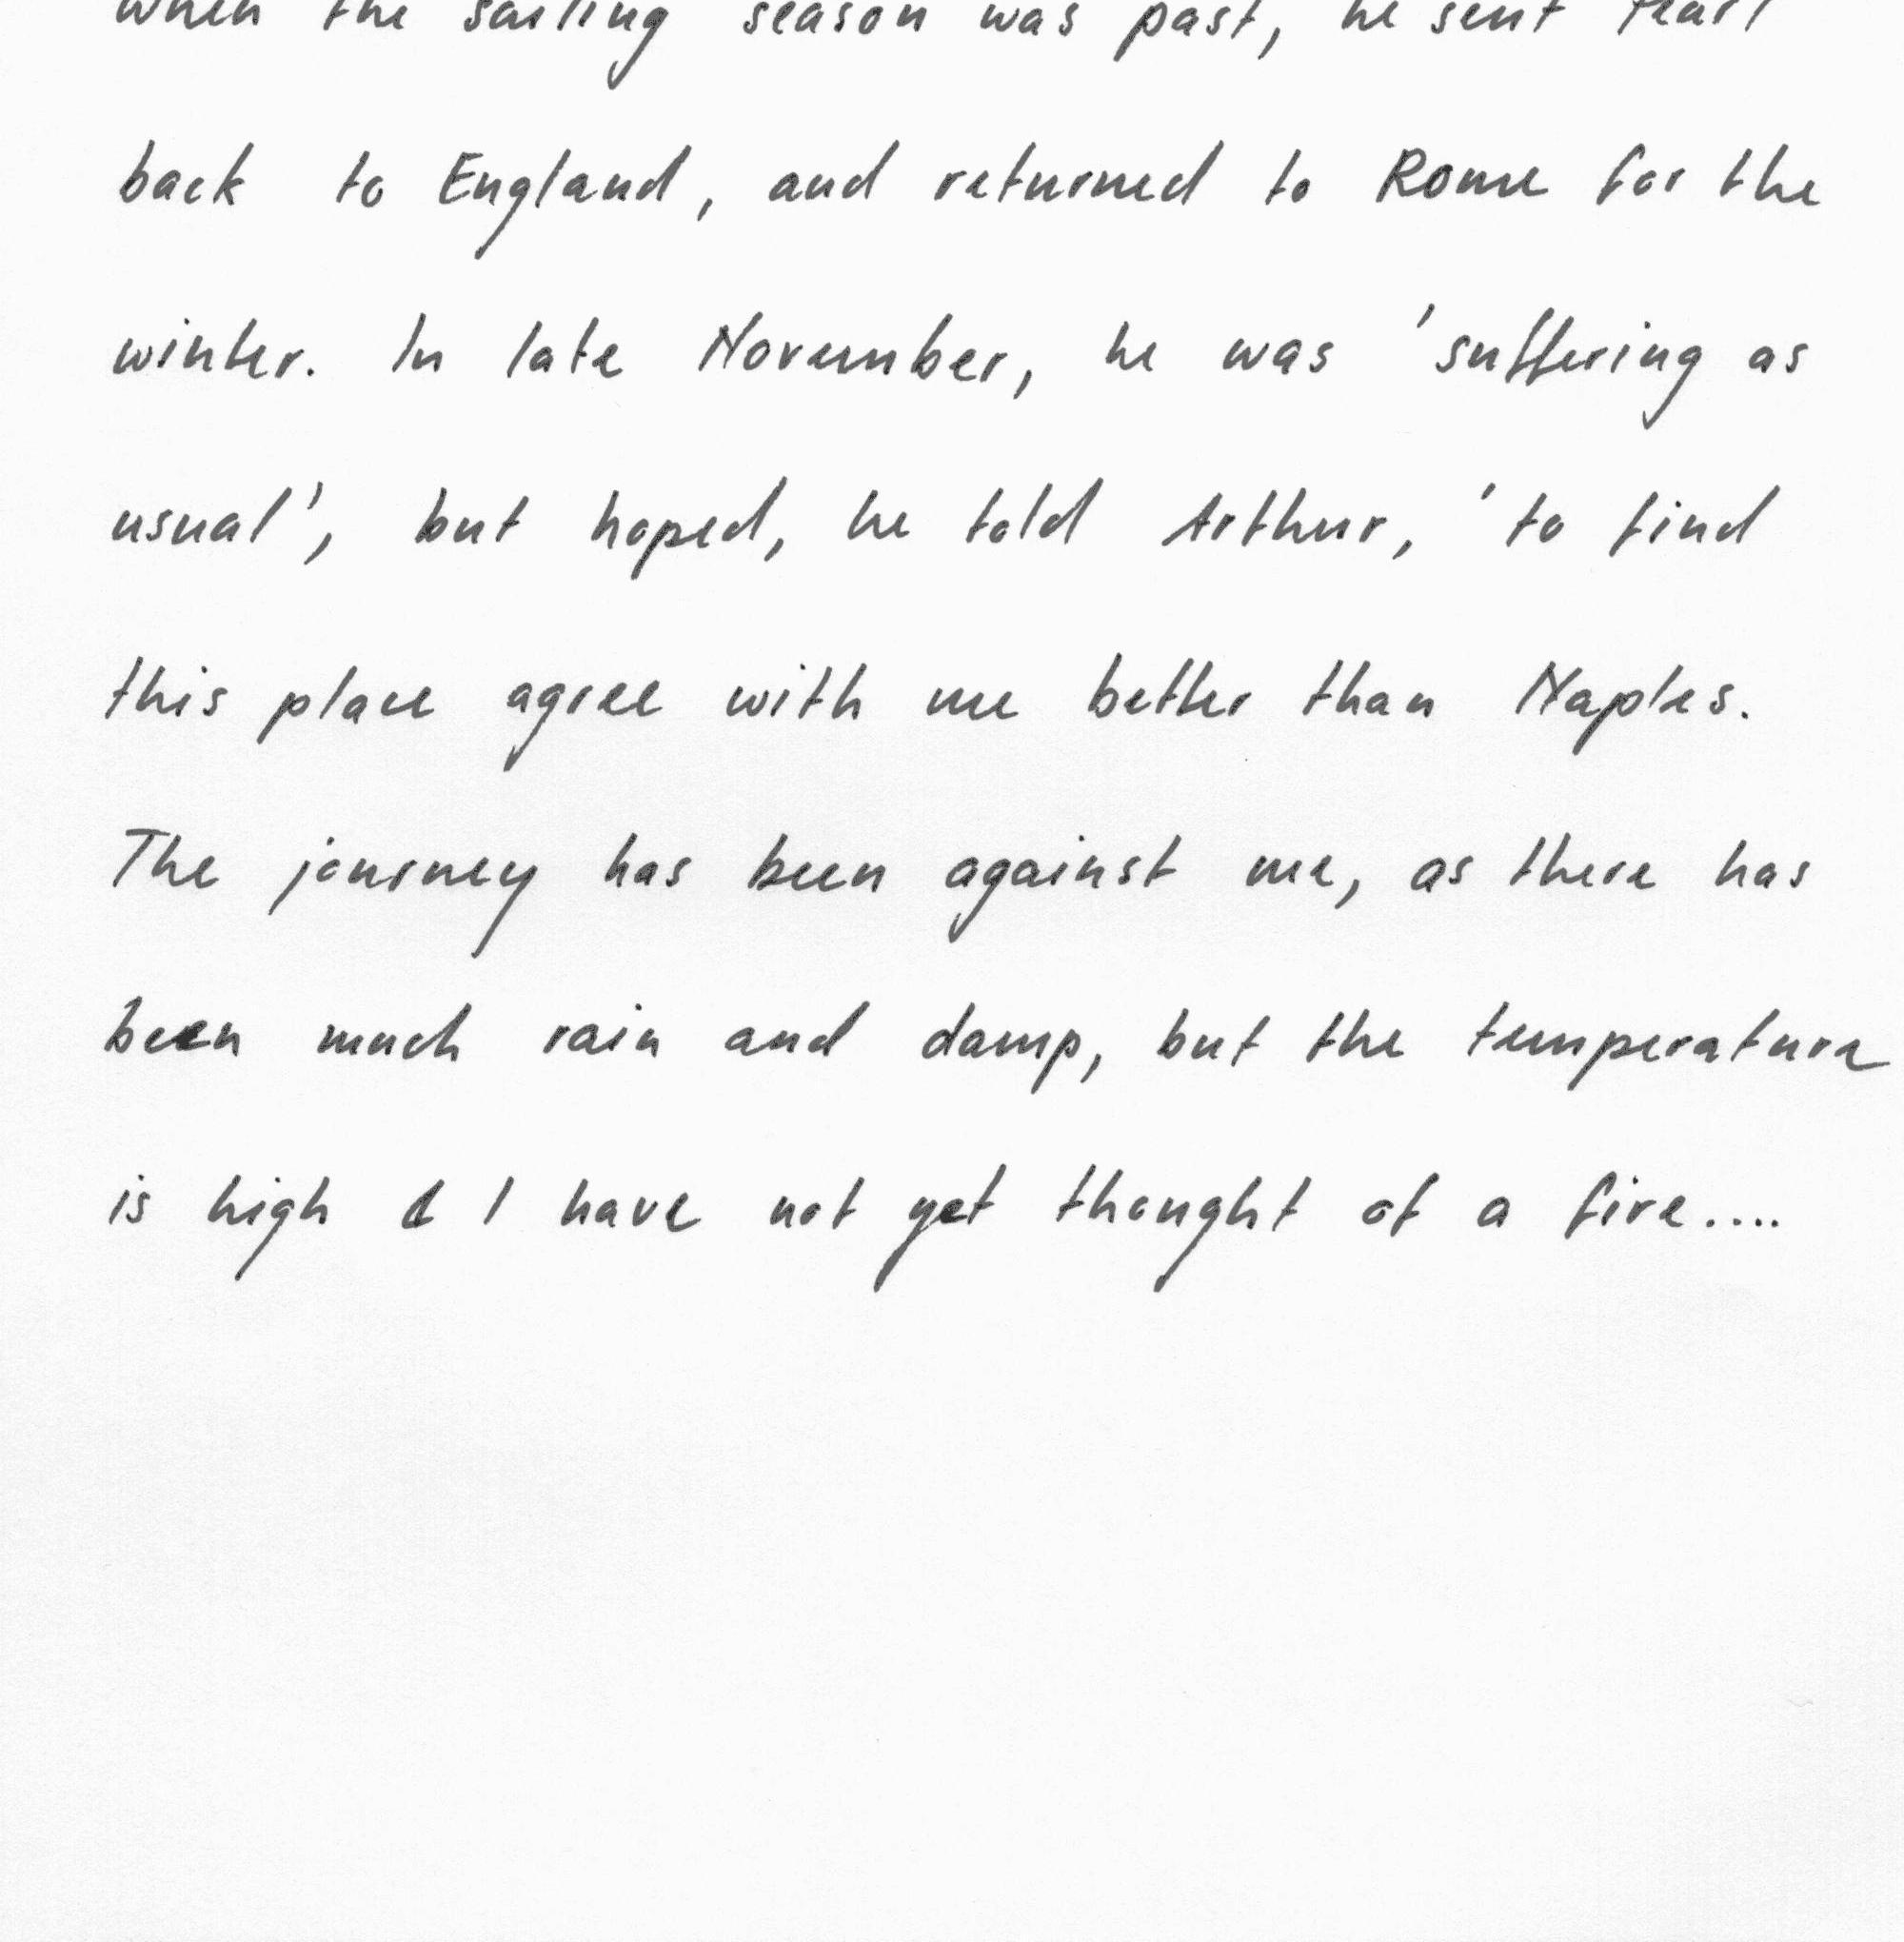 when the sailing season was past, he sent Pearl
back to England, and returned to Rome for the
winter. In late November, he was 'suffering as
usual', but hoped, he told Arthur, 'to find
this place agree with me better than Naples.
The journey has been against me, as there has
been much rain and damp, but the temperature
is high & I have not yet thought of a fire....